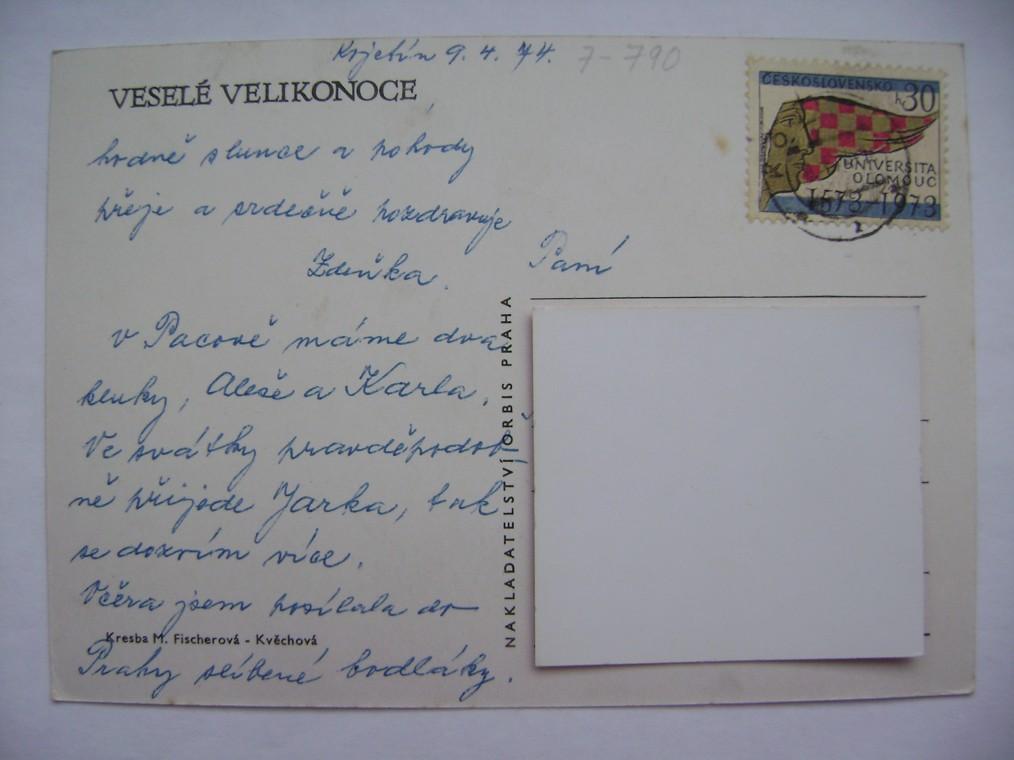 Kojetín 9. 4. 74.
7-790
VESELÉ VELIKONOCE
hodně slunce a pohody
přeje a srdečně pozdravuje
Zdeňka.
V Pacově máme dva
kluky, Aleše a Karla.
Ve svátky pravděpodob-
ně přijede Jarka, tak
se dozvím více.
Včera jsem posílala do
Kresba M. Fischerová - Kvěchová
Prahy slíbené bodláky.
NAKLADATELSTVÍ ORBIS PRAHA
Paní
ČESKOSLOVENSKO
h 30
UNIVERSITA
OLOMOUC
1573-1973